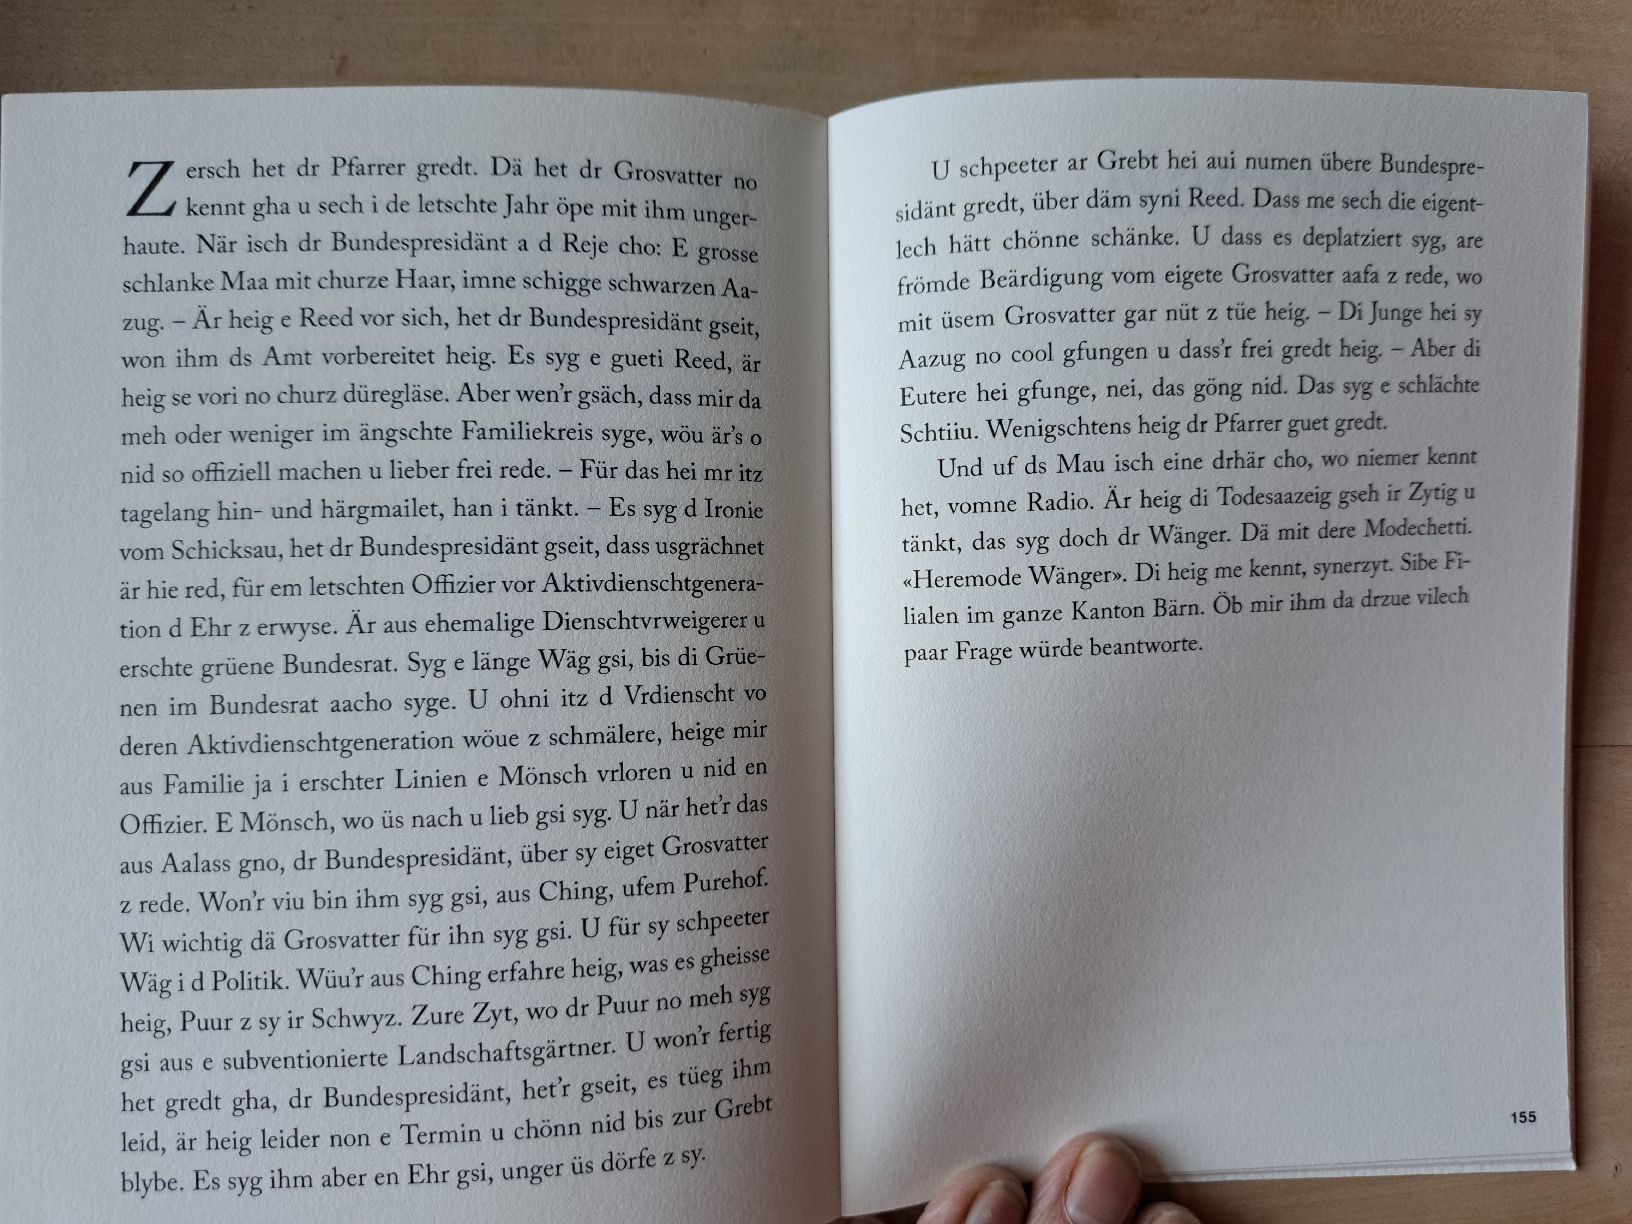 Zersch het dr Pfarrer gredt. Dä het dr Grosvatter no
kennt gha u sech i de letschte Jahr öpe mit ihm unger-
haute. När isch dr Bundespresidänt a d Reje cho: E grosse
schlanke Maa mit churze Haar, imne schigge schwarzen Aa-
zug. – Är heig e Reed vor sich, het dr Bundespresidänt gseit,
won ihm ds Amt vorbereitet heig. Es syg e gueti Reed, är
heig se vori no churz düregläse. Aber wen’r gsäch, dass mir da
meh oder weniger im ängschte Familiekreis syge, wöu är’s o
nid so offiziell machen u lieber frei rede. – Für das hei mr itz
tagelang hin- und härgmailet, han i tänkt. – Es syg d Ironie
vom Schicksau, het dr Bundespresidänt gseit, dass usgrächnet
är hie red, für em letschten Offizier vor Aktivdienschtgenera-
tion d Ehr z erwyse. Är aus ehemalige Dienschtvrweigerer u
erschte grüene Bundesrat. Syg e länge Wäg gsi, bis di Grüe-
nen im Bundesrat aacho syge. U ohni itz d Vrdienscht vo
deren Aktivdienschtgeneration wöue z schmälere, heige mir
aus Familie ja i erschter Linien e Mönsch vrloren u nid en
Offizier. E Mönsch, wo üs nach u lieb gsi syg. U när het’r das
aus Aalass gno, dr Bundespresidänt, über sy eiget Grosvatter
z rede. Won’r viu bin ihm syg gsi, aus Ching, ufem Purehof.
Wi wichtig dä Grosvatter für ihn syg gsi. U für sy schpeeter
Wäg i d Politik. Wüu’r aus Ching erfahre heig, was es gheisse
heig, Puur z sy ir Schwyz. Zure Zyt, wo dr Puur no meh syg
gsi aus e subventionierte Landschaftsgärtner. U won’r fertig
het gredt gha, dr Bundespresidänt, het’r gseit, es tüeg ihm
leid, är heig leider non e Termin u chönn nid bis zur Grebt
blybe. Es syg ihm aber en Ehr gsi, unger üs dörfe z sy.
U schpeeter ar Grebt hei aui numen übere Bundespre-
sidänt gredt, über däm syni Reed. Dass me sech die eigent-
lech hätt chönne schänke. U dass es deplatziert syg, are
frömde Beärdigung vom eigete Grosvatter aafa z rede, wo
mit üsem Grosvatter gar nüt z tüe heig. – Di Junge hei sy
Aazug no cool gfungen u dass’r frei gredt heig. – Aber di
Eutere hei gfunge, nei, das göng nid. Das syg e schlächte
Schtiiu. Wenigschtens heig dr Pfarrer guet gredt.
Und uf ds Mau isch eine drhär cho, wo niemer kennt
het, vomne Radio. Är heig di Todesaazeig gseh ir Zytig u
tänkt, das syg doch dr Wänger. Dä mit dere Modechetti.
«Heremode Wänger». Di heig me kennt, synerzyt. Sibe Fi-
lialen im ganze Kanton Bärn. Öb mir ihm da drzue vilech
paar Frage würde beantworte.
155